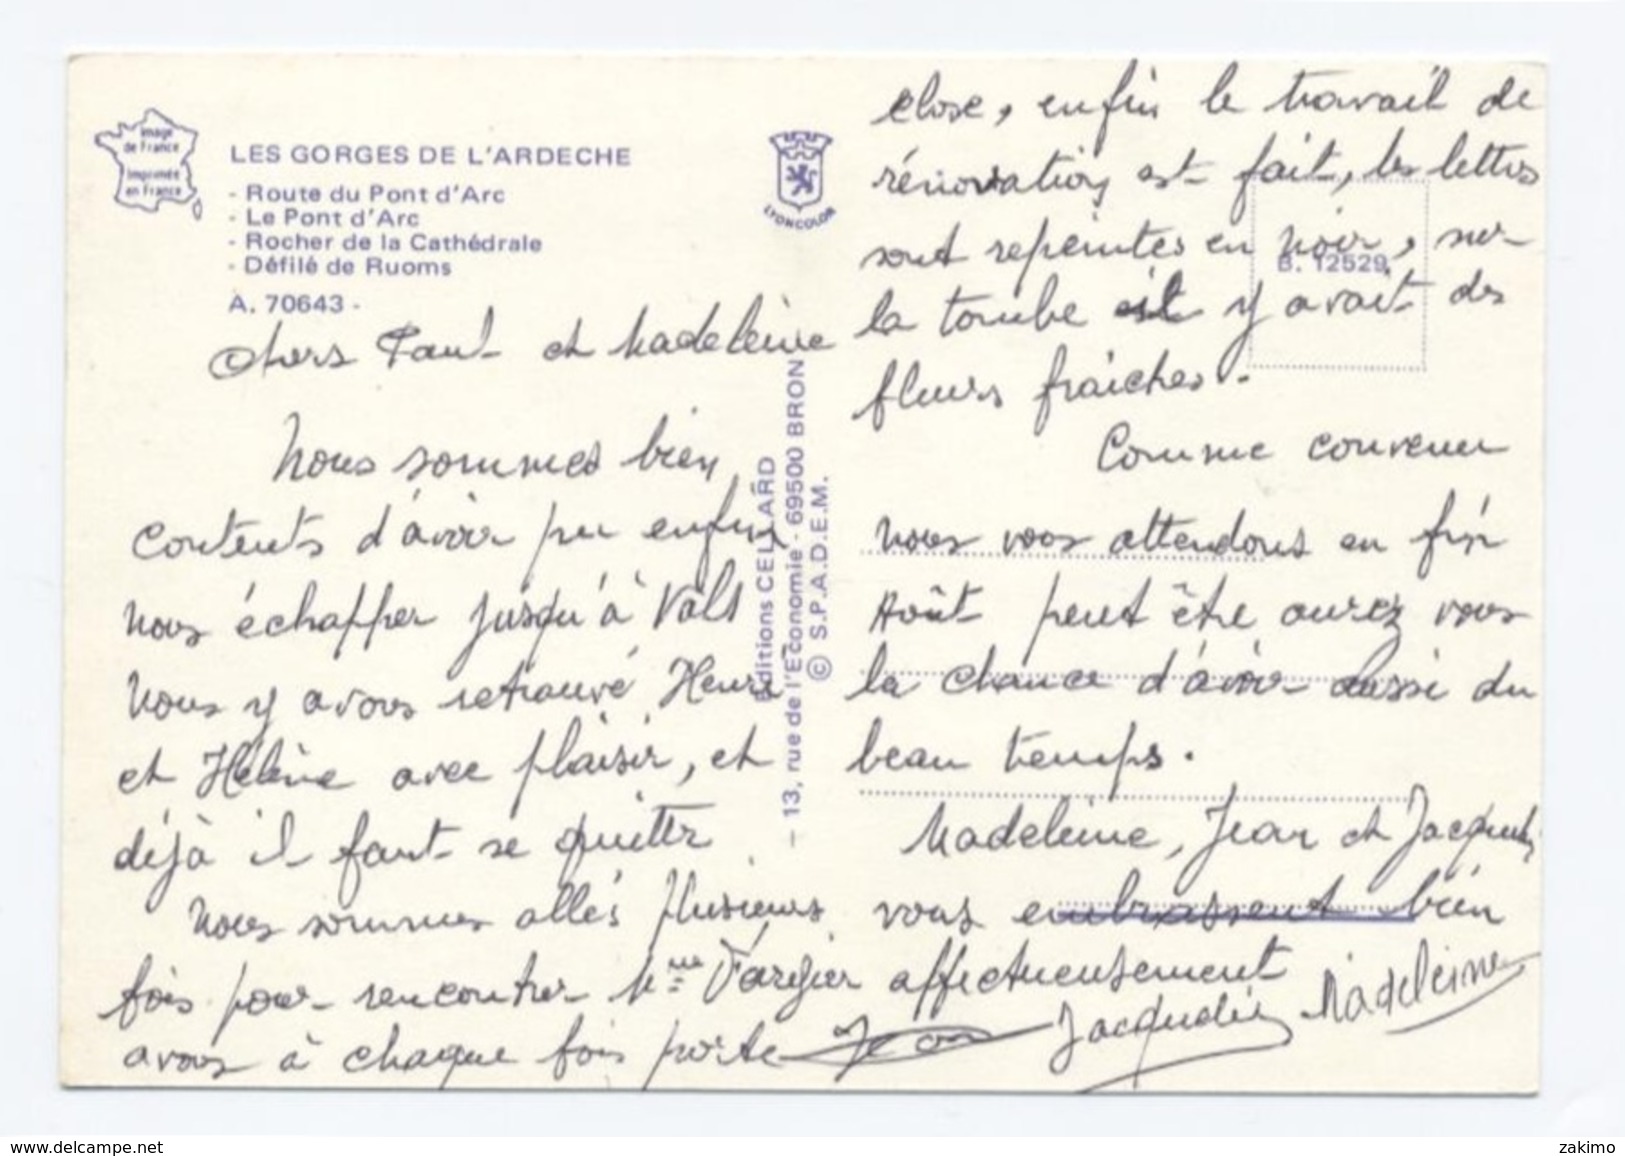 Image
de France
Imprimée
en France
LES GORGES DE L'ARDECHE
- Route du Pont d'Arc
- Le Pont d'Arc
- Rocher de la Cathédrale
- Défilé de Ruoms
A. 70643 -
LYONCOLOR
Chers Paul et Madeleine
Nous sommes bien
contents d'avoir pu enfin
nous échapper jusqu'à Vals
Nous y avons retrouvé Henri
et Hélène avec plaisir, et
déjà il faut se quitter
Nous sommes allés plusieurs
fois pour rencontrer Mme Fargier
avons à chaque fois porte
Editions CELLARD
- 13, rue de l'Economie - 69500 BRON
© S.P.A.D.E.M.
close, enfin le travail de
rénovation est fait, les lettres
sont repeintes en noir, sur
B. 12529
la tombe il y avait des
fleurs fraiches.
Comme convenu
nous vous attendons en fin
Août peut être aurez vous
la chance d'avoir aussi du
beau temps.
Madeleine, Jean et Jacquelin
vous embrassent bien
affectueusement
Jean Jacqueline Madeleine
www.delcampe.net
zakimo